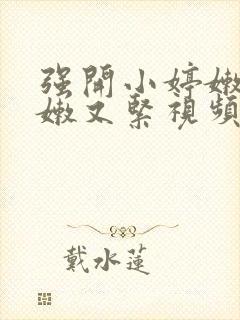 强開小婷嫩
嫩又緊視頻
戴水蓮